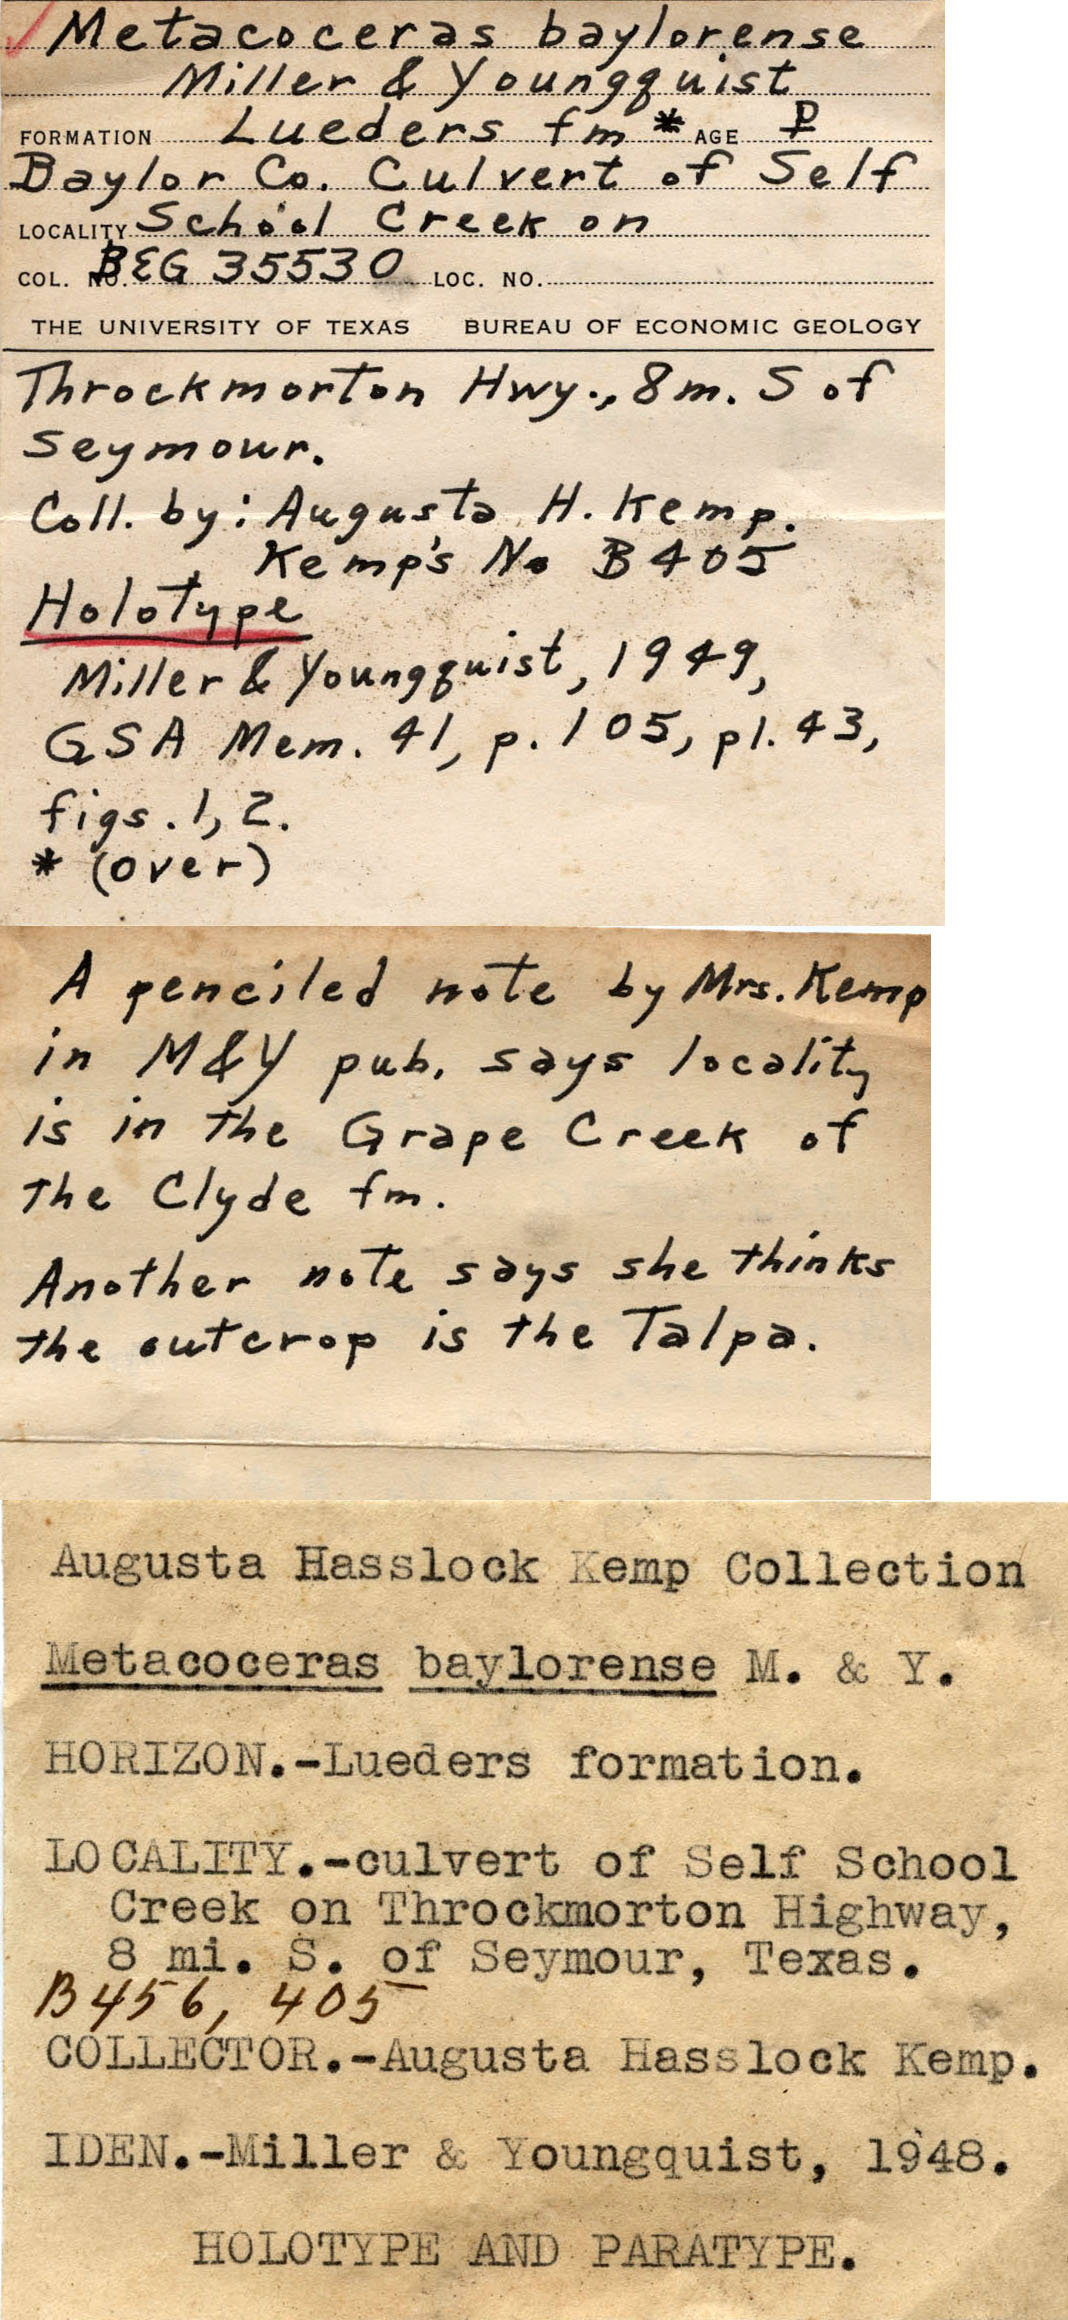 Metacoceras baylorense
Miller & Youngquist
FORMATION Lueders fm * AGE P
Baylor Co. Culvert of Self
LOCALITY School Creek on
COL. NO. BEG 35530 LOC. NO.
THE UNIVERSITY OF TEXAS BUREAU OF ECONOMIC GEOLOGY
Throckmorton Hwy., 8m. S of
Seymour.
Coll. by: Augusta H. Kemp.
Kemp's No B405
Holotype
Miller & Youngquist, 1949,
GSA Mem. 41, p. 105, pl. 43,
figs. 1, 2.
* (over)
A penciled note by Mrs. Kemp
in M&Y pub. says locality
is in the Grape Creek of
the Clyde fm.
Another note says she thinks
the outcrop is the Talpa.
Augusta Hasslock Kemp Collection
Metacoceras baylorense M. & Y.
HORIZON.-Lueders formation.
LOCALITY.-culvert of Self School
Creek on Throckmorton Highway,
8 mi. S. of Seymour, Texas.
B456, 405
COLLECTOR.-Augusta Hasslock Kemp.
IDEN.-Miller & Youngquist, 1948.
HOLOTYPE AND PARATYPE.